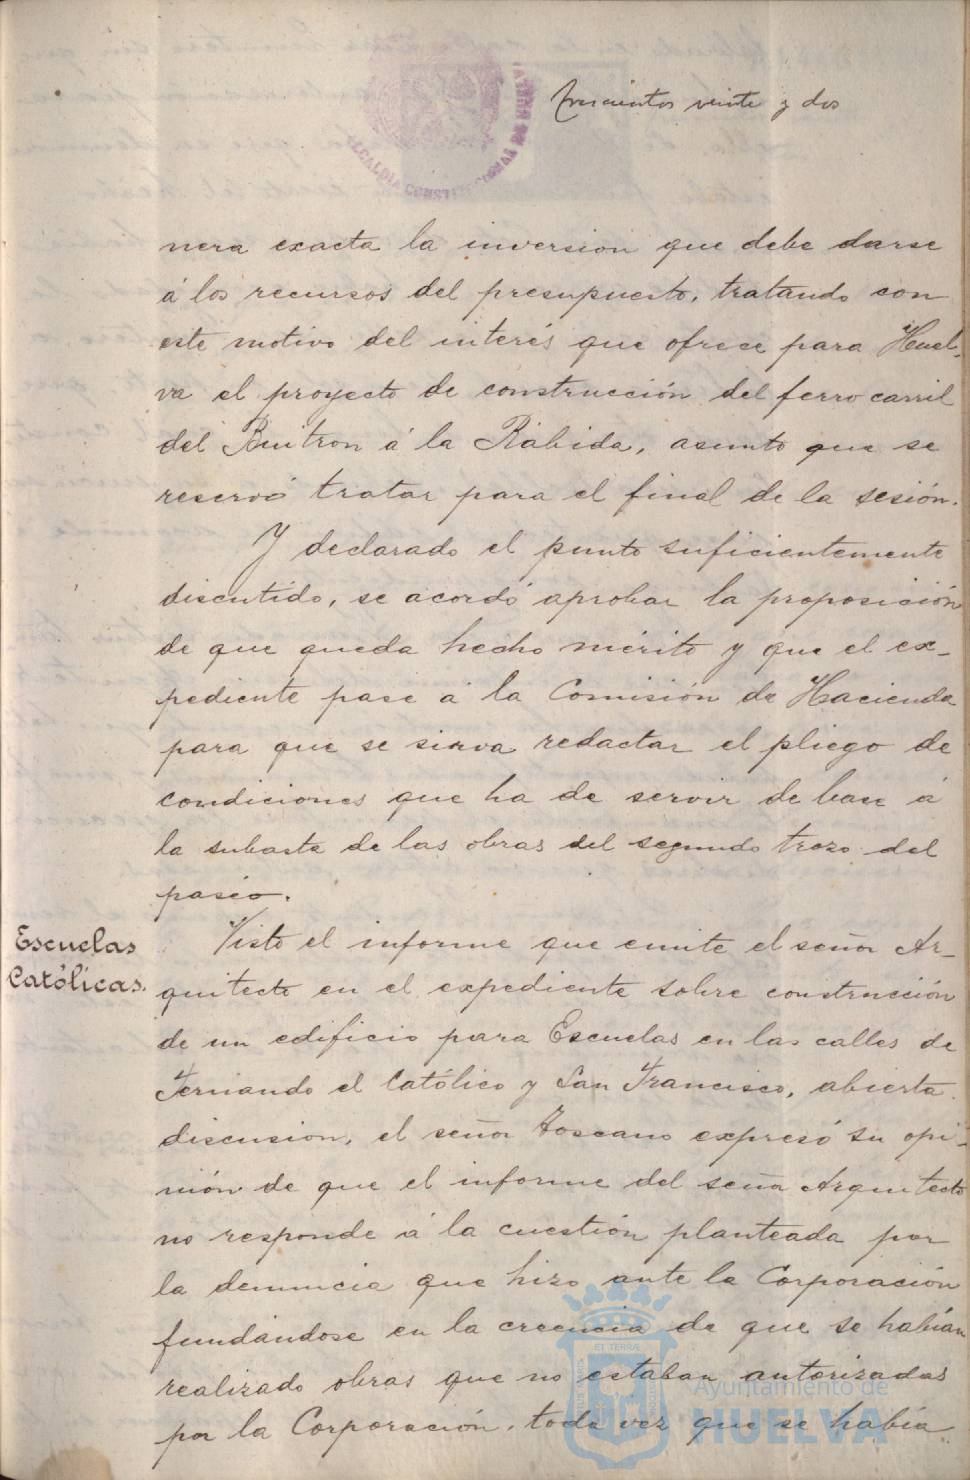 Trescientos veinte y dos
ALCALDIA CONSTITUCIONAL DE HUELVA
nera exacta la inversion que debe darse
á los recursos del presupuesto, tratando con
este motivo del interés que ofrece para Huel-
va el proyecto de construcción del ferro carril
del Buitron á la Rábida, asunto que se
reservó tratar para el final de la sesión.
Y declarado el punto suficientemente
discutido, se acordó aprobar la proposición
de que queda hecho mérito y que el ex-
pediente pase á la Comisión de Hacienda
para que se sirva redactar el pliego de
condiciones que ha de servir de base á
la subasta de las obras del segundo trozo del
paseo.
Escuelas
Católicas.
Visto el informe que emite el señor Ar-
quitecto en el expediente sobre construcción
de un edificio para Escuelas en las calles de
Fernando el Católico y San Francisco, abierta
discusion, el señor Toscano expresó su opi-
nión de que el informe del señor Arquitecto
no responde á la cuestión planteada por
la denuncia que hizo ante la Corporación
fundándose en la creencia de que se habían
realizado obras que no estaban autorizadas
por la Corporación, toda vez que se había
Ayuntamiento de
HUELVA